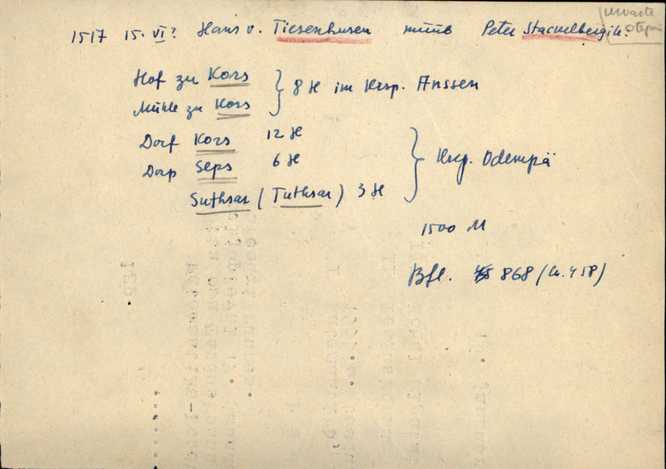 Urvaste
Otepää
1517 15. VI? Hans v. Tiesenhusen müüb Peter Stackelbergile.
Hof zu Kors
Mühle zu Kors } 8 H im Krsp. Anssen
Dorf Kors 12 H
Dorp Seps 6 H } Krsp. Odempä
Suthsar (Tuthsar) 3 H
1500 M
Bfl. 868 (Lr. 458)